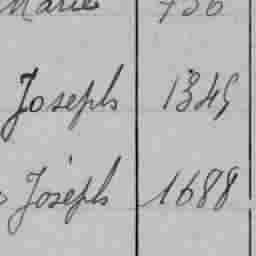 Marie 736
Joseph 1345
Joseph 1688